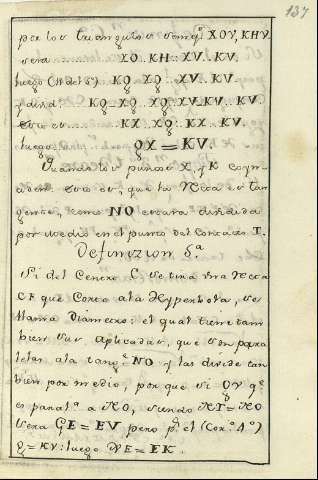 137
por los triangulos semej.s XOV, KHV
sera XO. KH:: XV. KV.
luego (11 del 5º) KQ XQ:: XV. KV.
y divid. KQ-XQ. XQ:: XV-KV. KV.
esto es KX XQ:: KX. KV.
luego QX = KV.
Quando los puntos X, y K coyn-
ciden esto es, que la Recta es tan
gente, como NO estara dividida
por medio en el punto del Contacto I.
Definizion 5.a
Si del Centro C se tira una recta
CF que Corte ala Hyperbola, se
llama Diametro: el qual tiene tam
bien sus Aplicadas, que son para
lelas ala tang.e NO y las divide tan
bien por medio, por que si QV q.e
es paral.a a NO, siendo NI = NO
sera GE = EV pero p.r el (Cor.º 4º)
= KV: luego = EK.